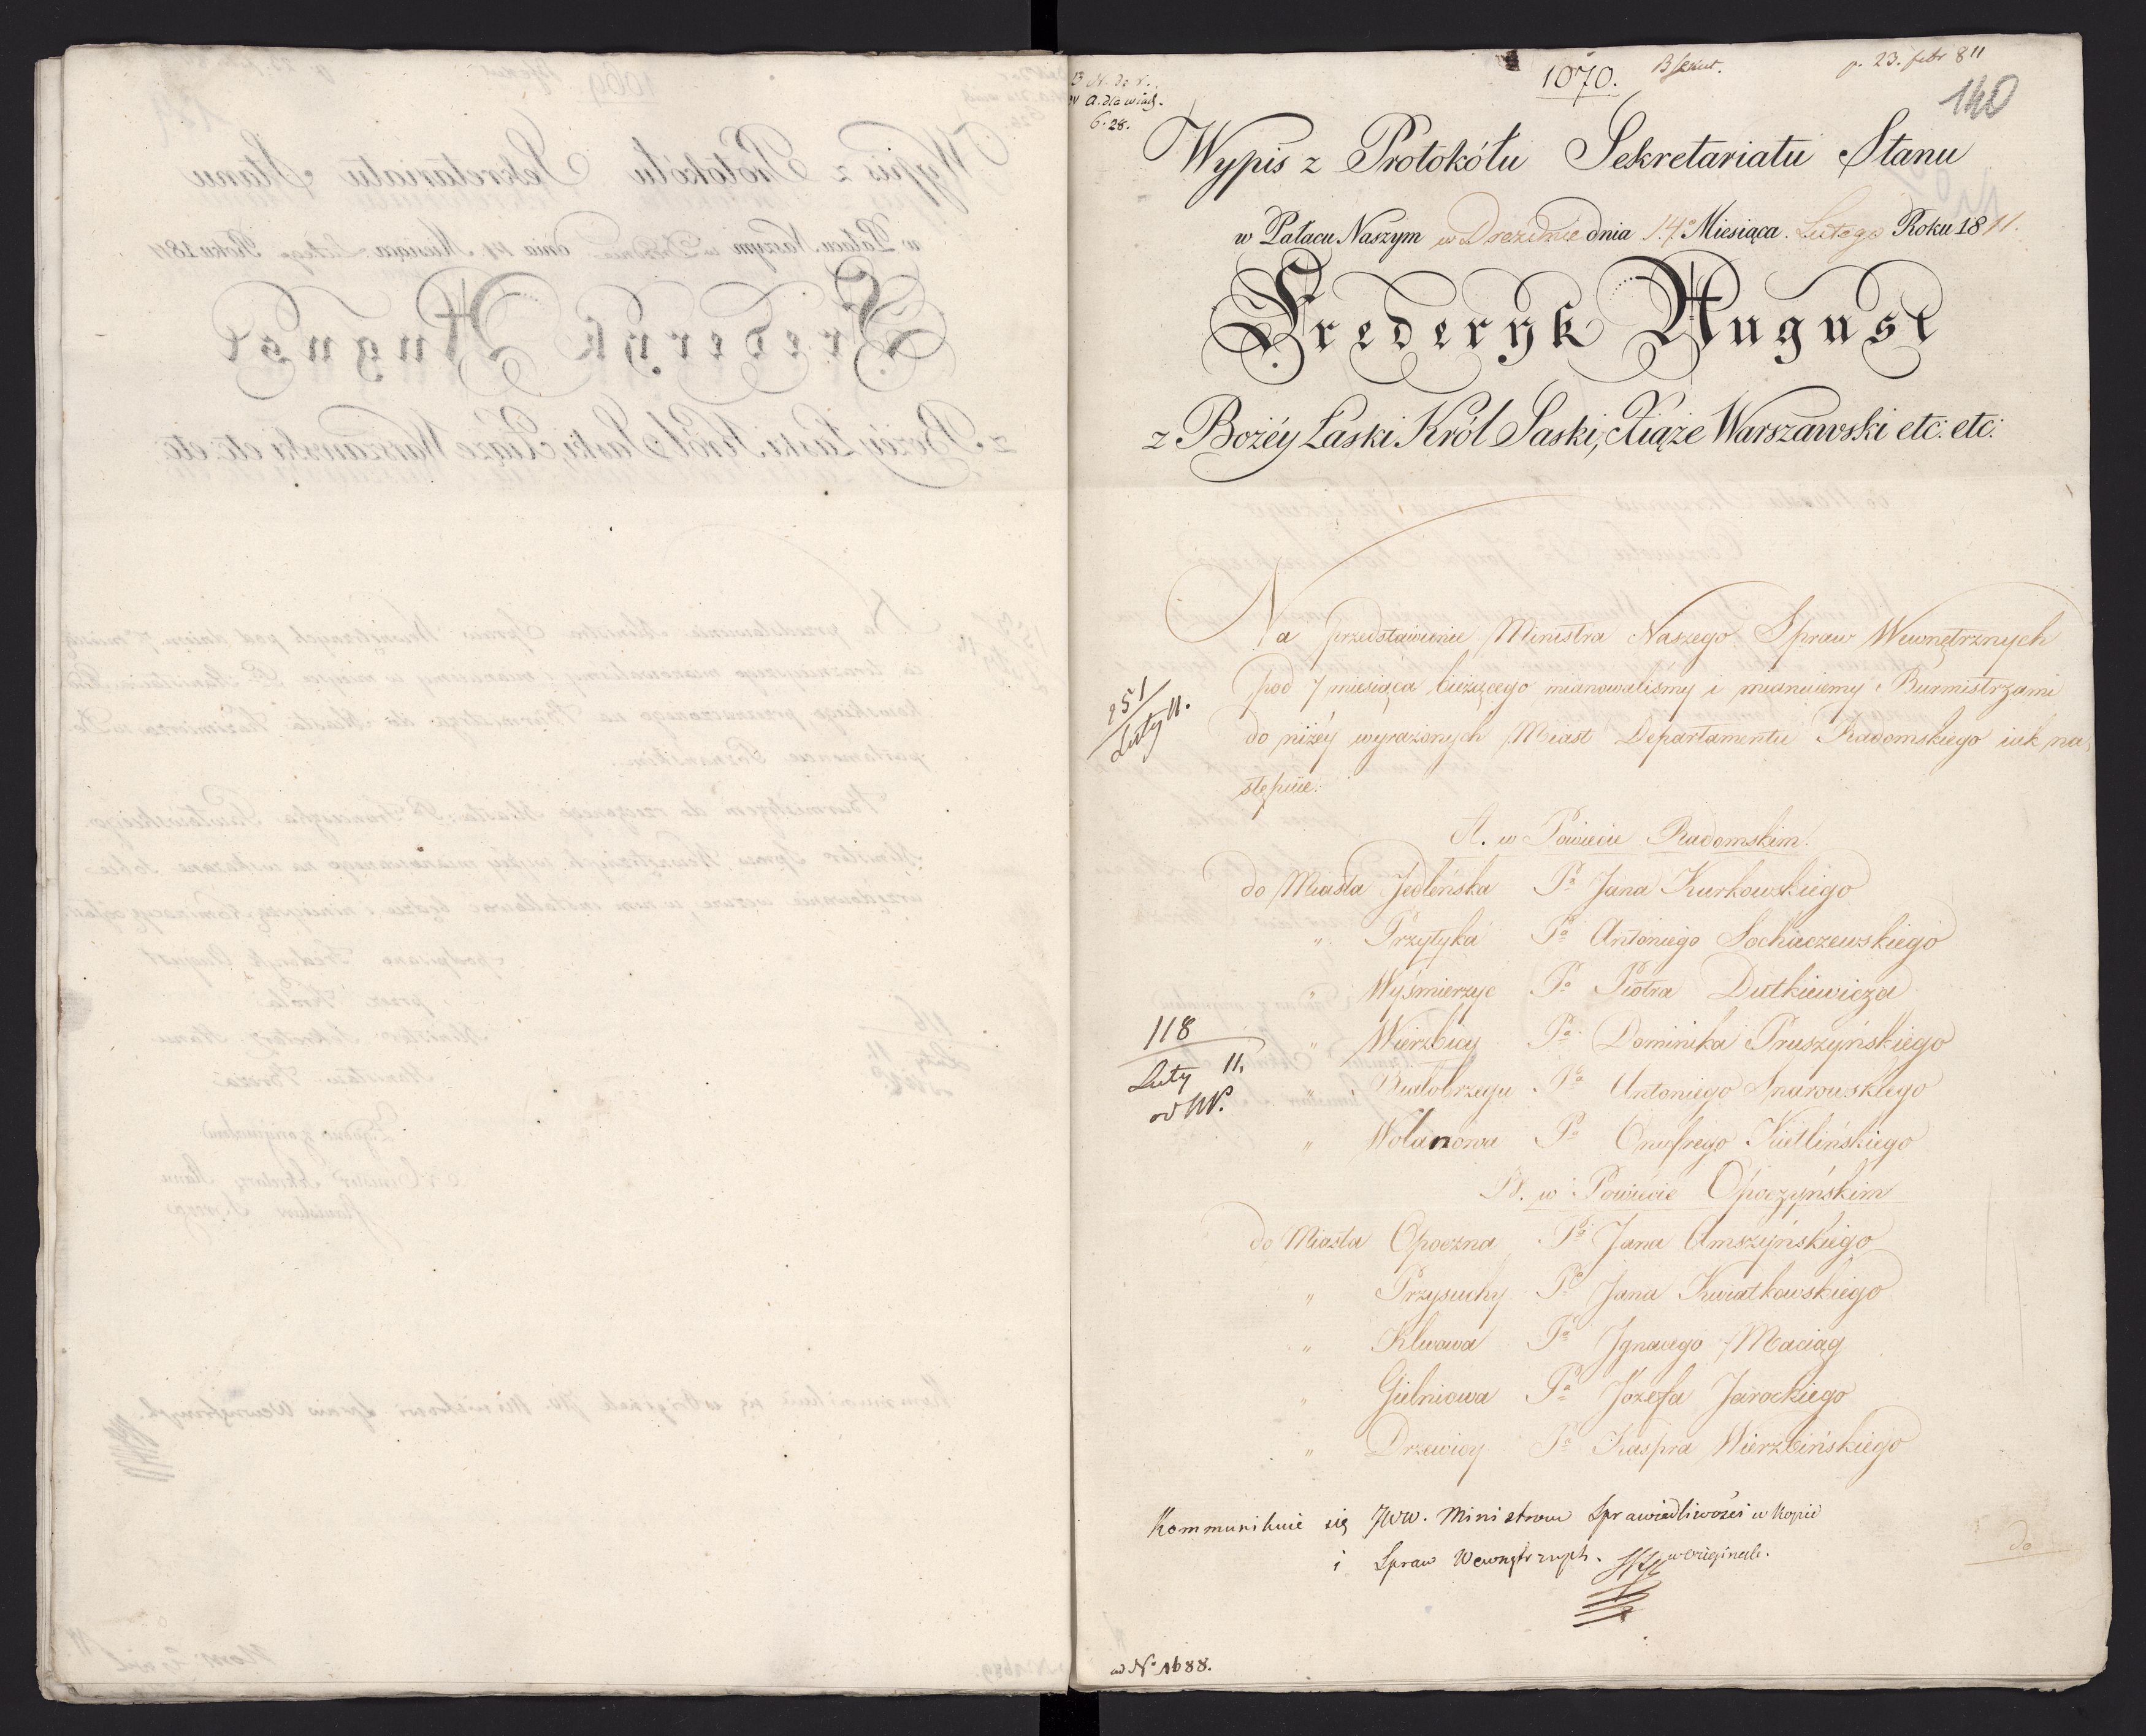 1070.
p. 23. febr 811
140
a. dla wiad.
6. 28.
Wypis z Protokółu Sekretariatu Stanu
w Pałacu Naszym w Dreznie dnia 14° Miesiąca Lutego Roku 1811.
Frederyk August
z Bożéy Łaski Król Saski, Xiąże Warszawski etc: etc:
Na przedstawienie Ministra Naszego Spraw Wewnętrznych
pod 7 miesiąca bieżącego mianowaliśmy i mianuiemy Burmistrzami
251
Luty 11.
do niżey wyrażonych Miast Departamentu Radomskiego iak na,
stępuie:
A. w Powiecie Radomskim.
do Miasta Jedleńska Pa Jana Kurkowskiego
" Przytyka Pa Antoniego Sochaczewskiego
" Wyśmierzyc Pa Piotra Dutkiewicza
118
Luty 11.
od NN.
" Wierzbicy Pa Dominika Pruszyńskiego
" Białobrzegu Pa Antoniego Snarowskiego
" Wolanowa Pa Onufrego Kietlińskiego
B. w Powiecie Opoczyńskim
do Miasta Opoczna Pa Jana Omszyńskiego
" Przysuchy Pa Jana Kwiatkowskiego
" Klwowa Pa Jgnacego Maciąg
" Gielniowa Pa Józefa Jarockiego
" Drzewicy Pa Kaspra Wierzbińskiego
Kommunikuie się JWW. Ministrom Sprawiedliwości w kopii
i Spraw Wewnętrznych. w originale.
do
ad No 1688.